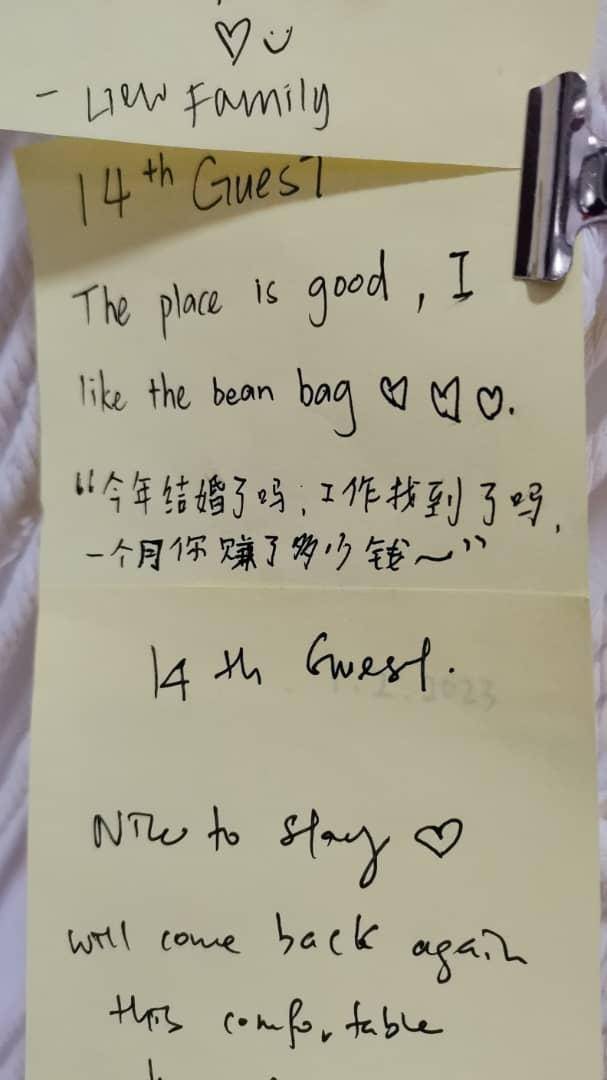 ♡ ☺
- Liew Family
14th Guest
The place is good, I
like the bean bag ♡ ♡ ♡.
“今年结婚了吗; 工作找到了吗,
一个月你赚了多少钱～”
14th Guest.
2023
Nice to stay ♡
will come back again
this comfortable